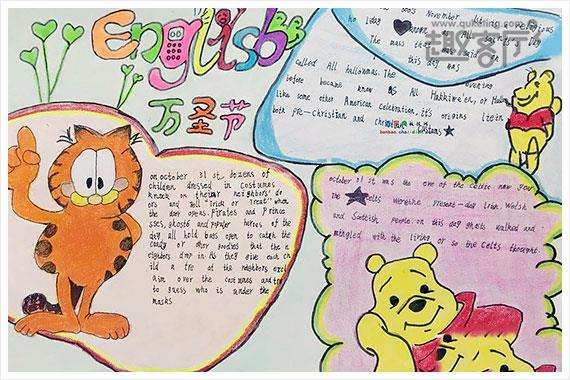 English
万圣节
on october 31 st dozens of
children dressed in costumes
knock on their neighbors' do
ors and yell "Trick or Treat" when
the door opens. Pirates and Prince
sses, ghosts and popular heroes of the
day all hold bags open to catch the
candy or other goodies that the n
eighbors drop in. As they give each ch
ild a tre at the neighbors excl
aim over the costumes and try
to guess who is under the
masks
November
holiday
The mass that was said on
this day was
called All hallowmas. The evening
before became know as All Hakkiwe'en, or
like some other American Celebration, it's origins lie in
both pre-Christian and
october 31 st was the eve of the celtic new year
The Celts were the present-day Irish, Welsh
and Scottish people. on this day ghosts walked and
mingled with the living or so the Celts thought.
www.quketing.com
趣客厅